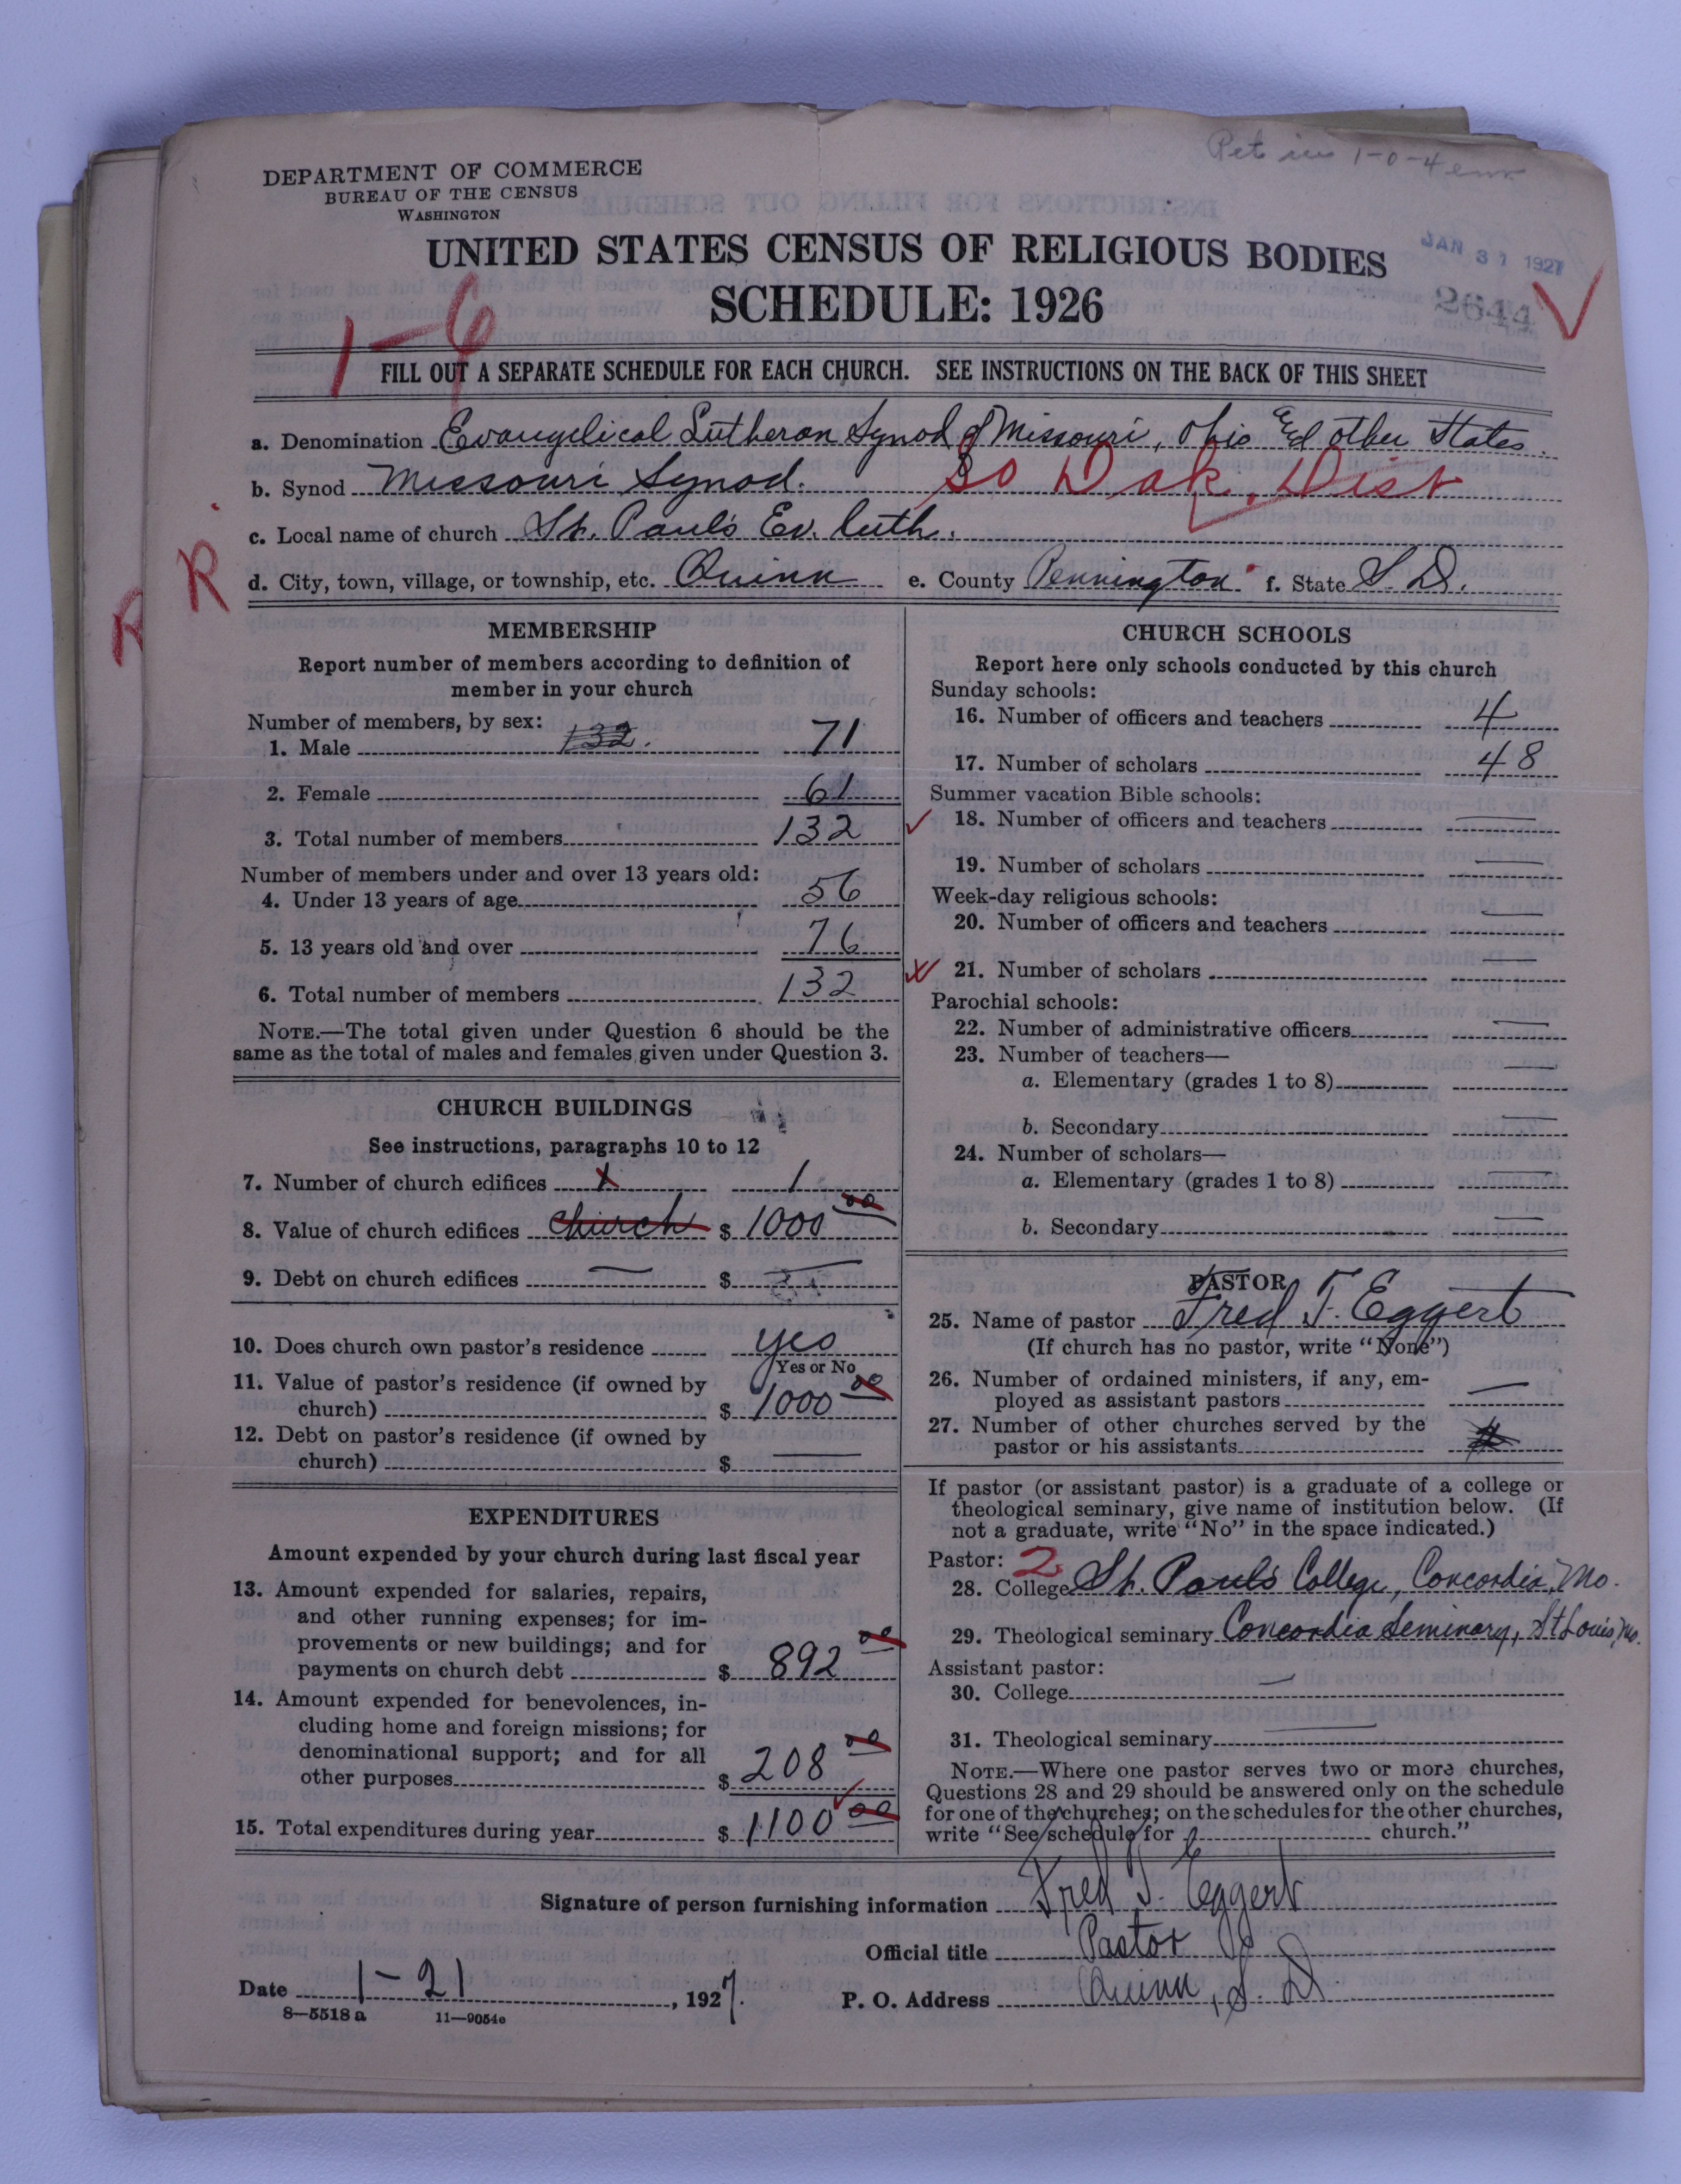 DEPARTMENT OF COMMERCE
BUREAU OF THE CENSUS
WASHINGTON
UNITED STATES CENSUS OF RELIGIOUS BODIES
SCHEDULE: 1926
JAN 31 1927
2644
1-6
FILL OUT A SEPARATE SCHEDULE FOR EACH CHURCH. SEE INSTRUCTIONS ON THE BACK OF THIS SHEET
a. Denomination Evangelical Lutheran Synod of Missouri, Ohio and other States.
b. Synod Missouri Synod. So Dak. Dist
c. Local name of church St. Paul's Ev. Luth.
d. City, town, village, or township, etc. Quinn e. County Pennington f. State S.D.
R R
MEMBERSHIP
Report number of members according to definition of
member in your church
Number of members, by sex:
1. Male 132. 71
2. Female 61
3. Total number of members 132
Number of members under and over 13 years old:
4. Under 13 years of age 56
5. 13 years old and over 76
6. Total number of members 132
NOTE.—The total given under Question 6 should be the
same as the total of males and females given under Question 3.
CHURCH BUILDINGS
See instructions, paragraphs 10 to 12
7. Number of church edifices 1 1
8. Value of church edifices church $ 1000 00
9. Debt on church edifices — $ —
10. Does church own pastor's residence yes
Yes or No
11. Value of pastor's residence (if owned by
church) $ 1000 00
12. Debt on pastor's residence (if owned by
church) $ —
EXPENDITURES
Amount expended by your church during last fiscal year
13. Amount expended for salaries, repairs,
and other running expenses; for im-
provements or new buildings; and for
payments on church debt $ 892 00
14. Amount expended for benevolences, in-
cluding home and foreign missions; for
denominational support; and for all
other purposes $ 208 00
15. Total expenditures during year $ 1100 00
CHURCH SCHOOLS
Report here only schools conducted by this church
Sunday schools:
16. Number of officers and teachers 4
17. Number of scholars 48
Summer vacation Bible schools:
18. Number of officers and teachers —
19. Number of scholars —
Week-day religious schools:
20. Number of officers and teachers —
21. Number of scholars —
Parochial schools:
22. Number of administrative officers —
23. Number of teachers—
a. Elementary (grades 1 to 8) —
b. Secondary —
24. Number of scholars—
a. Elementary (grades 1 to 8) —
b. Secondary —
PASTOR
25. Name of pastor Fred T. Eggert
(If church has no pastor, write "None")
26. Number of ordained ministers, if any, em-
ployed as assistant pastors —
27. Number of other churches served by the
pastor or his assistants
If pastor (or assistant pastor) is a graduate of a college or
theological seminary, give name of institution below. (If
not a graduate, write "No" in the space indicated.)
Pastor: 2
28. College St. Paul's College, Concordia, Mo.
29. Theological seminary Concordia Seminary, St Louis, Mo.
Assistant pastor:
30. College —
31. Theological seminary —
NOTE.—Where one pastor serves two or more churches,
Questions 28 and 29 should be answered only on the schedule
for one of the churches; on the schedules for the other churches,
write "See schedule for church."
Signature of person furnishing information Fred T. Eggert
Official title Pastor
Date 1-21, 1927. P. O. Address Quinn, S. D.
8—5518 a 11—9054c